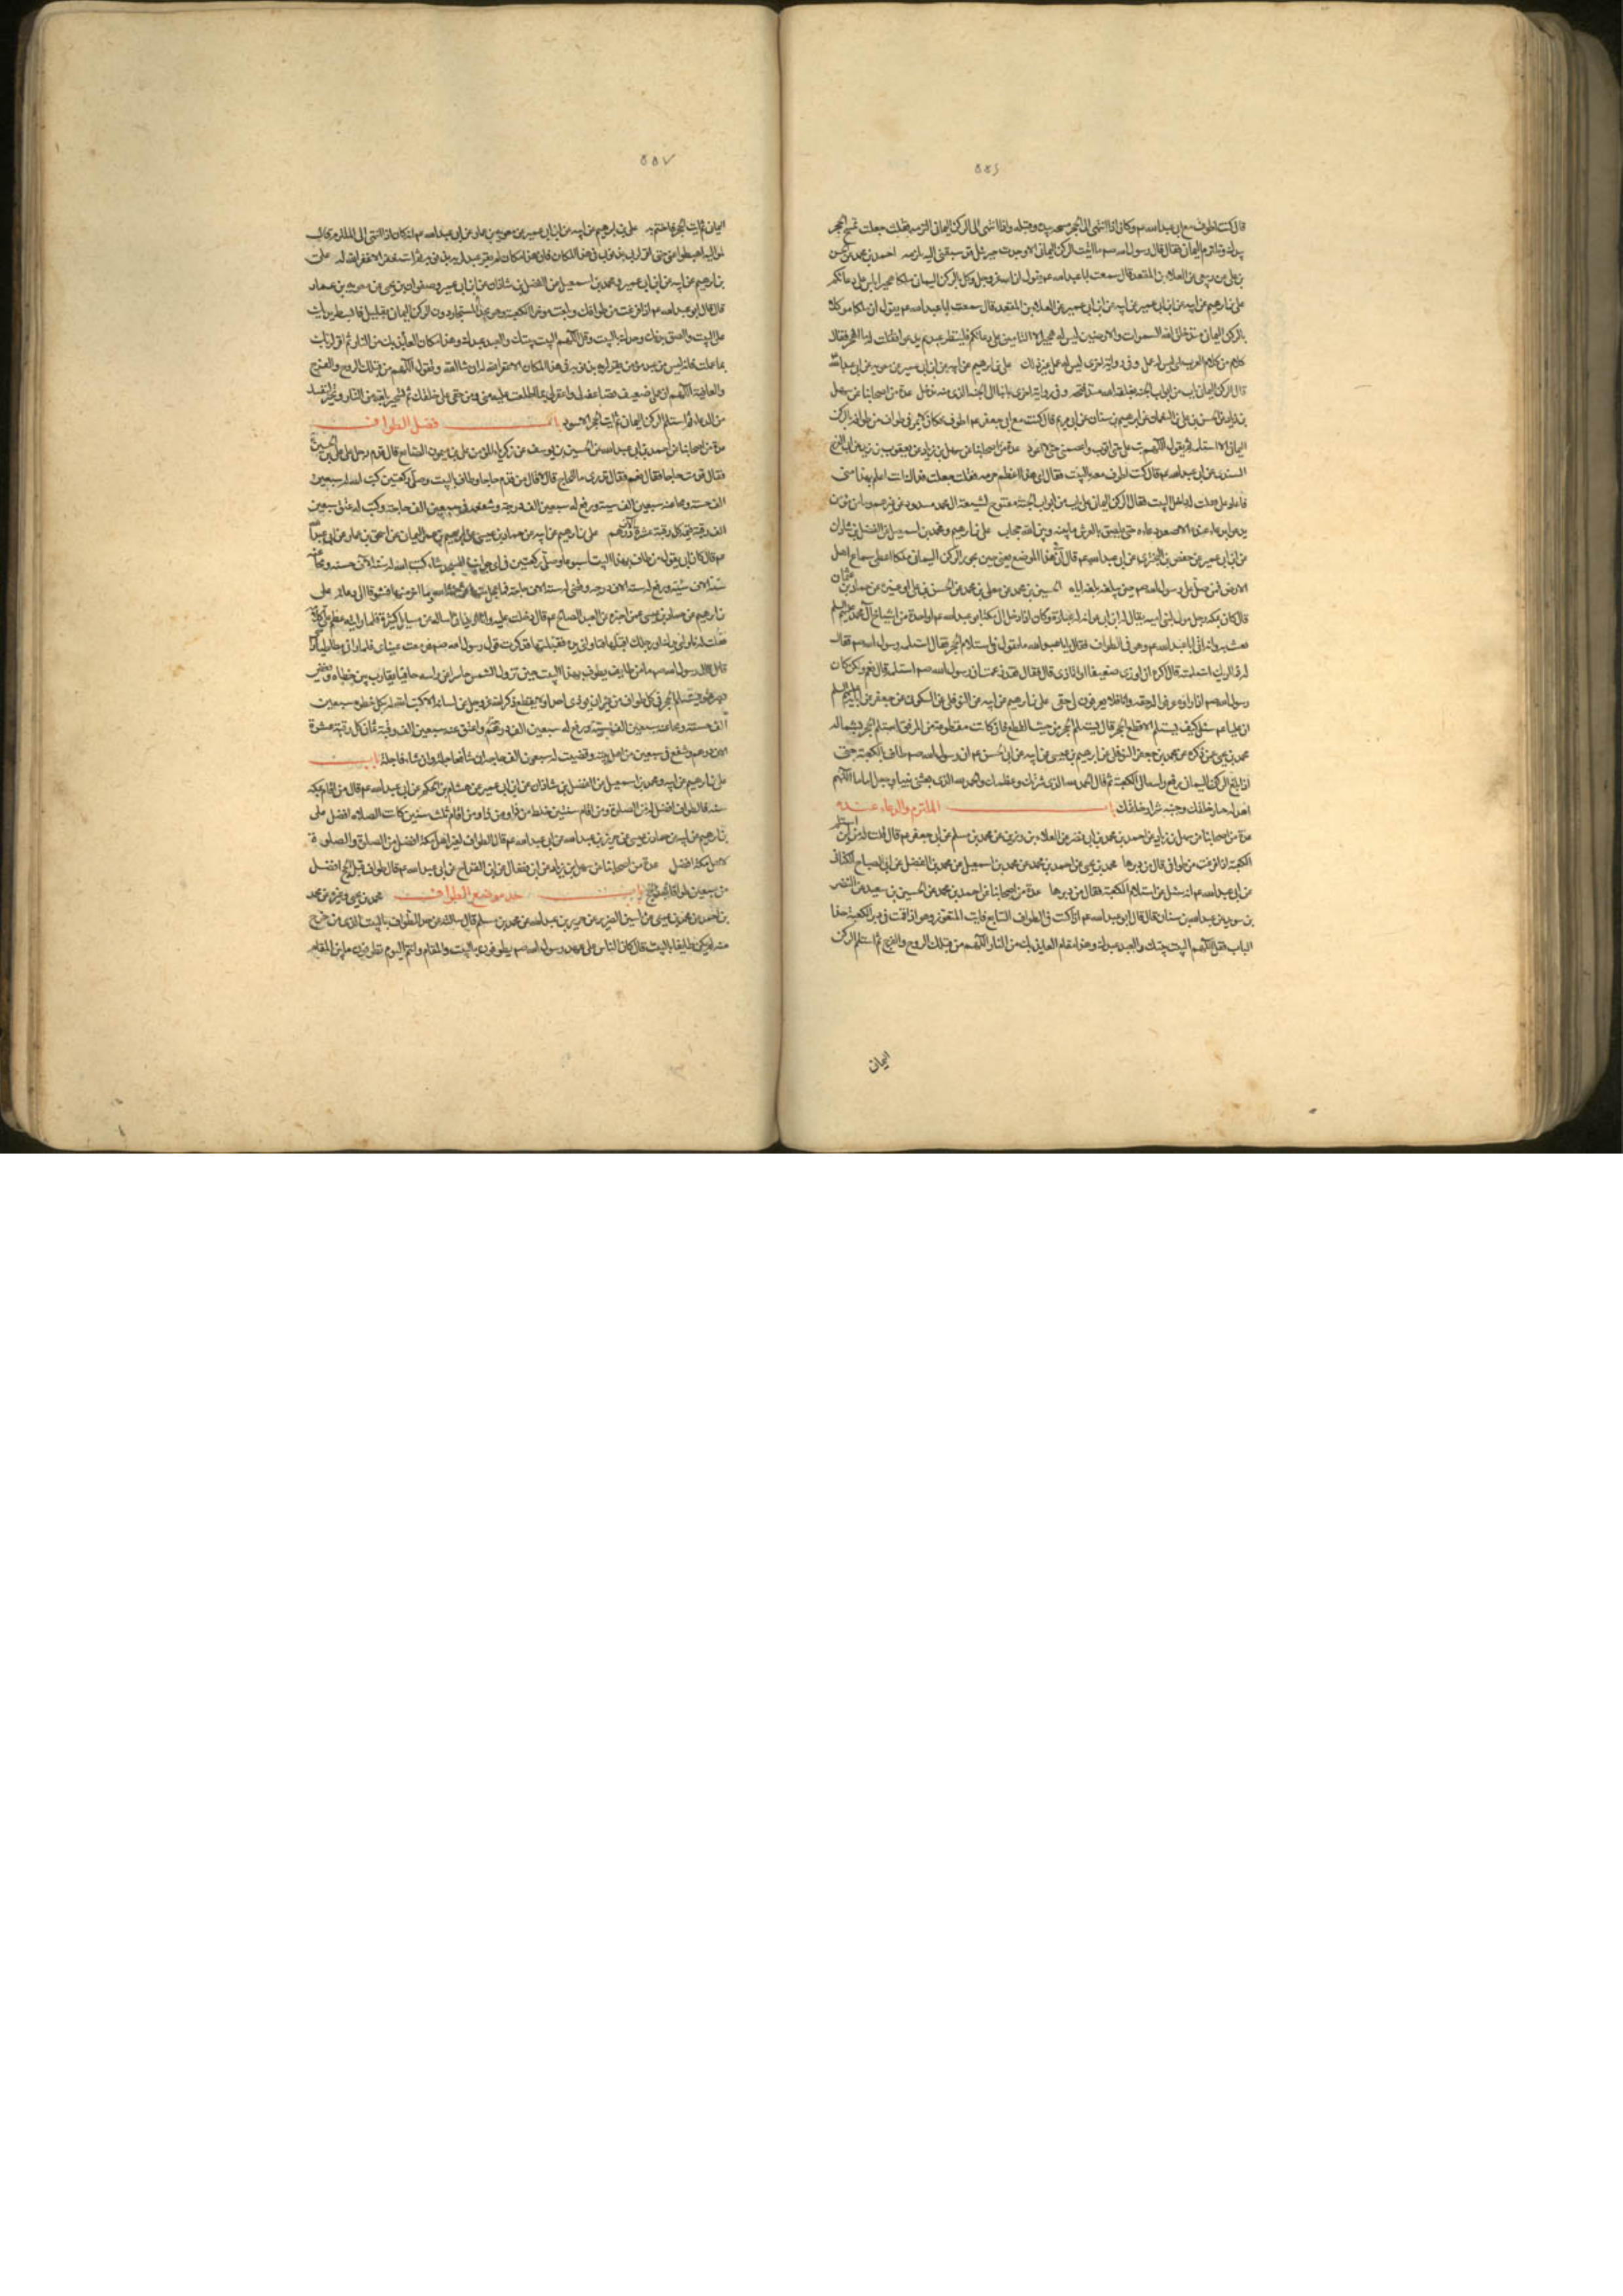 ٥٥٦
قال كنت اطوف مع ابي عبد الله عم وكان اذا انتهى الى الحجر مسحه بيده وقبله واذا انتهى الى الركن اليماني التزمه فقلت جعلت فداك تمسح الحجر
بيدك وتلتزم اليماني فقال قال رسول الله صم ما اتيت الركن اليماني الا وجدت جبرئيل قد سبقني اليه يلتزمه احمد بن محمد عن الحسن
بن علي عن ربعي عن العلاء بن المقعد قال سمعت ابا عبد الله عم يقول ان الله عز وجل وكل بالركن اليماني ملكا هجيرا يؤمن على دعائكم
علي بن ابرهيم عن ابيه عن ابن ابي عمير عن العلاء بن المقعد قال سمعت ابا عبد الله عم يقول ان ملكا موكلا
بالركن اليماني منذ خلق الله السموات والارضين ليس له هجير الا التامين على دعائكم فلينظر عبد بم يدعو فقلت له ما الهجير فقال
كلام من كلام العرب اي ليس له عمل وفي رواية اخرى ليس له عمل غير ذلك علي بن ابرهيم عن ابيه عن ابن ابي عمير عن معوية عن ابي عبد الله
قال الركن اليماني باب من ابواب الجنة لم يغلقه الله منذ فتحه وفي رواية اخرى بابنا الى الجنة الذي منه ندخل عدة من اصحابنا عن سهل
بن زياد عن الحسن بن علي بن النعمان عن ابرهيم بن سنان عن ابي مريم قال كنت مع ابي جعفر عم اطوف فكان لا يمر في طواف من طوافه بالركن
اليماني الا استلمه ثم يقول اللهم تب علي حتى اتوب واعصمني حتى لا اعود عدة من اصحابنا عن سهل بن زياد عن يعقوب بن يزيد عن ابي الفرج
السندي عن ابي عبد الله عم قال كنت اطوف معه بالبيت فقال اي هذا اعظم حرمة فقلت جعلت فداك انت اعلم بهذا مني
فاعاد علي فقلت له داخل البيت فقال الركن اليماني على باب من ابواب الجنة مفتوح لشيعة ال محمد مسدود عن غيرهم وما من مؤمن
يدعو بدعاء عنده الا صعد دعاءه حتى يلصق بالعرش ما بينه وبين الله حجاب علي بن ابرهيم ومحمد بن اسمعيل عن الفضل بن شاذان
عن ابن ابي عمير عن حفص بن البختري عن ابي عبد الله عم قال ان في هذا الموضع يعني حين يجوز الركن اليماني ملكا اعطي سماع اهل
الارض فمن صلى على رسول الله صم حين يبلغه ابلغه اياه الحسين بن محمد عن معلى بن محمد عن الحسن بن علي الوشاء عن حماد بن عثمان
قال كان بمكة رجل مولى لبني امية يقال له ابن ابي عوانة له عبادة وكان اذا دخل الى مكة ابو عبد الله عم او احد من اشياخ آل محمد عليهم السلم
يعبث به وانه اتى ابا عبد الله عم وهو في الطواف فقال يا ابا عبد الله ما تقول في استلام الحجر فقال استلمه رسول الله صم فقال
له ما اراك استلمته قال اكره ان اوذي ضعيفا او اتاذى قال فقال قد زعمت ان رسول الله صم استلمه قال نعم ولكن كان
رسول الله صم اذا راوه عرفوا له حقه وانا فلا يعرفون لي حقي علي بن ابرهيم عن ابيه عن النوفلي عن السكوني عن جعفر عن ابائه عليهم السلم
ان عليا عم سئل كيف يستلم الاقطع الحجر قال يستلم الحجر من حيث القطع فان كانت مقطوعة من المرفق استلم الحجر بشماله
محمد بن يحيى عمن ذكره عن محمد بن جعفر النوفلي عن ابرهيم بن عيسى عن ابيه عن ابي الحسن عم ان رسول الله صم طاف بالكعبة حتى
اذا بلغ الركن اليماني رفع راسه الى الكعبة ثم قال الحمد لله الذي شرفك وعظمك والحمد لله الذي بعثني نبيا وجعل عليا اماما اللهم
اهد له خيار خلقك وجنبه شرار خلقك باب الملتزم والدعاء عنده
عدة من اصحابنا عن سهل بن زياد عن احمد بن محمد بن ابي نصر عن العلاء بن رزين عن محمد بن مسلم عن ابي جعفر عم قال قلت له من اين استلم
الكعبة اذا فرغت من طوافي قال من دبرها محمد بن يحيى عن احمد بن محمد عن محمد بن اسمعيل عن محمد بن الفضيل عن ابي الصباح الكناني
عن ابي عبد الله عم انه سئل عن استلام الكعبة فقال من دبرها عدة من اصحابنا عن احمد بن محمد عن الحسين بن سعيد عن النضر
بن سويد عن عبد الله بن سنان قال قال ابو عبد الله عم اذا كنت في الطواف السابع فايت المتعوذ وهو اذا قمت في دبر الكعبة حذا
الباب فقل اللهم البيت بيتك والعبد عبدك وهذا مقام العائذ بك من النار اللهم من قبلك الروح والفرج ثم استلم الركن
اليمان
٥٥٧
اليماني ثم ايت الحجر فاختم به علي بن ابرهيم عن ابيه عن ابن ابي عمير عن معوية بن عمار عن ابي عبد الله عم انه كان اذا انتهى الى الملتزم قال
لمواليه اميطوا عني حتى اقر لربي بذنوبي في هذا المكان فان هذا مكان لم يقر عبد لربه بذنوبه ثم استغفر الا غفر الله له علي
بن ابرهيم عن ابيه عن ابن ابي عمير ومحمد بن اسمعيل عن الفضل بن شاذان عن ابن ابي عمير وصفوان بن يحيى عن معوية بن عمار
قال قال ابو عبد الله عم اذا فرغت من طوافك وبلغت مؤخر الكعبة وهو بحذاء المستجار دون الركن اليماني بقليل فابسط يديك
على البيت والصق بدنك وخدك بالبيت وقل اللهم البيت بيتك والعبد عبدك وهذا مكان العائذ بك من النار ثم اقر لربك
بما عملت فانه ليس من عبد مؤمن يقر لربه بذنوبه في هذا المكان الا غفر الله له ان شاء الله وتقول اللهم من قبلك الروح والفرج
والعافية اللهم ان عملي ضعيف فضاعفه لي واغفر لي ما اطلعت عليه مني وخفي على خلقك ثم تستجير بالله من النار وتخير لنفسك
من الدعاء ثم استلم الركن اليماني ثم ايت الحجر الاسود باب فضل الطواف
عدة من اصحابنا عن احمد بن ابي عبد الله عن الحسين بن يوسف عن زكريا المؤمن عن علي بن ميمون الصائغ قال قدم رجل على علي بن الحسين
فقال قدمت حاجا فقال نعم فقال تدري ما للحاج قال لا قال من قدم حاجا وطاف بالبيت وصلى ركعتين كتب الله له سبعين
الف حسنة ومحا عنه سبعين الف سيئة ورفع له سبعين الف درجة وشفعه في سبعين الف حاجة وكتب له عتق سبعين
الف رقبة قيمة كل رقبة عشرة آلاف درهم علي بن ابرهيم عن ابيه عن حماد بن عيسى عن ابرهيم بن عمر اليماني عن اسحق بن عمار عن ابي عبد الله
عم قال كان ابي يقول من طاف بهذا البيت اسبوعا وصلى ركعتين في اي جوانب المسجد شاء كتب الله له ستة الاف حسنة ومحا عنه
ستة الاف سيئة ورفع له ستة الاف درجة وقضى له ستة الاف حاجة فما عجل منها فبرحمة الله وما اخر منها فشوقا الى دعائه علي
بن ابرهيم عن حماد بن عيسى عمن اخبره عن العبد الصالح عم قال دخلت عليه وانا اريد ان اساله عن مسايل كثيرة فلما رايته عظم علي كلامه
فقلت له ناولني يدك او رجلك اقبلها فناولني يده فقبلتها فذكرت قول رسول الله صم فدمعت عيناي فلما راني مطاطئا راسي
قال قال رسول الله صم ما من طايف يطوف بهذا البيت حين تزول الشمس حاسرا عن راسه حافيا يقارب بين خطاه ويغض
بصره ويستلم الحجر في كل طواف من غير ان يؤذي احدا ولا يقطع ذكر الله عز وجل عن لسانه الا كتب الله له بكل خطوة سبعين
الف حسنة ومحا عنه سبعين الف سيئة ورفع له سبعين الف درجة واعتق عنه سبعين الف رقبة ثمن كل رقبة عشرة
الاف درهم وشفع في سبعين من اهل بيته وقضيت له سبعون الف حاجة ان شاء فعاجله وان شاء فاجله باب
علي بن ابرهيم عن ابيه ومحمد بن اسمعيل عن الفضل بن شاذان عن ابن ابي عمير عن هشام بن الحكم عن ابي عبد الله عم قال من اقام بمكة
سنة فالطواف افضل له من الصلوة ومن اقام سنتين خلط من ذا ومن ذا ومن اقام ثلث سنين كانت الصلاة افضل علي
بن ابرهيم عن ابيه عن حماد بن عيسى عن حريز بن عبد الله عن ابي عبد الله عم قال الطواف لغير اهل مكة افضل من الصلوة والصلوة
لاهل مكة افضل عدة من اصحابنا عن سهل بن زياد عن ابن فضال عن ابن القداح عن ابي عبد الله عم قال طواف قبل الحج افضل
من سبعين طوافا بعد الحج باب حد موضع الطواف محمد بن يحيى وغيره عن محمد
بن احمد عن محمد بن عيسى عن ياسين الضرير عن حريز بن عبد الله عن محمد بن مسلم قال سالته عن حد الطواف بالبيت الذي من خرج
منه لم يكن طايفا بالبيت قال كان الناس على عهد رسول الله صم يطوفون بالبيت والمقام وانتم اليوم تطوفون ما بين المقام